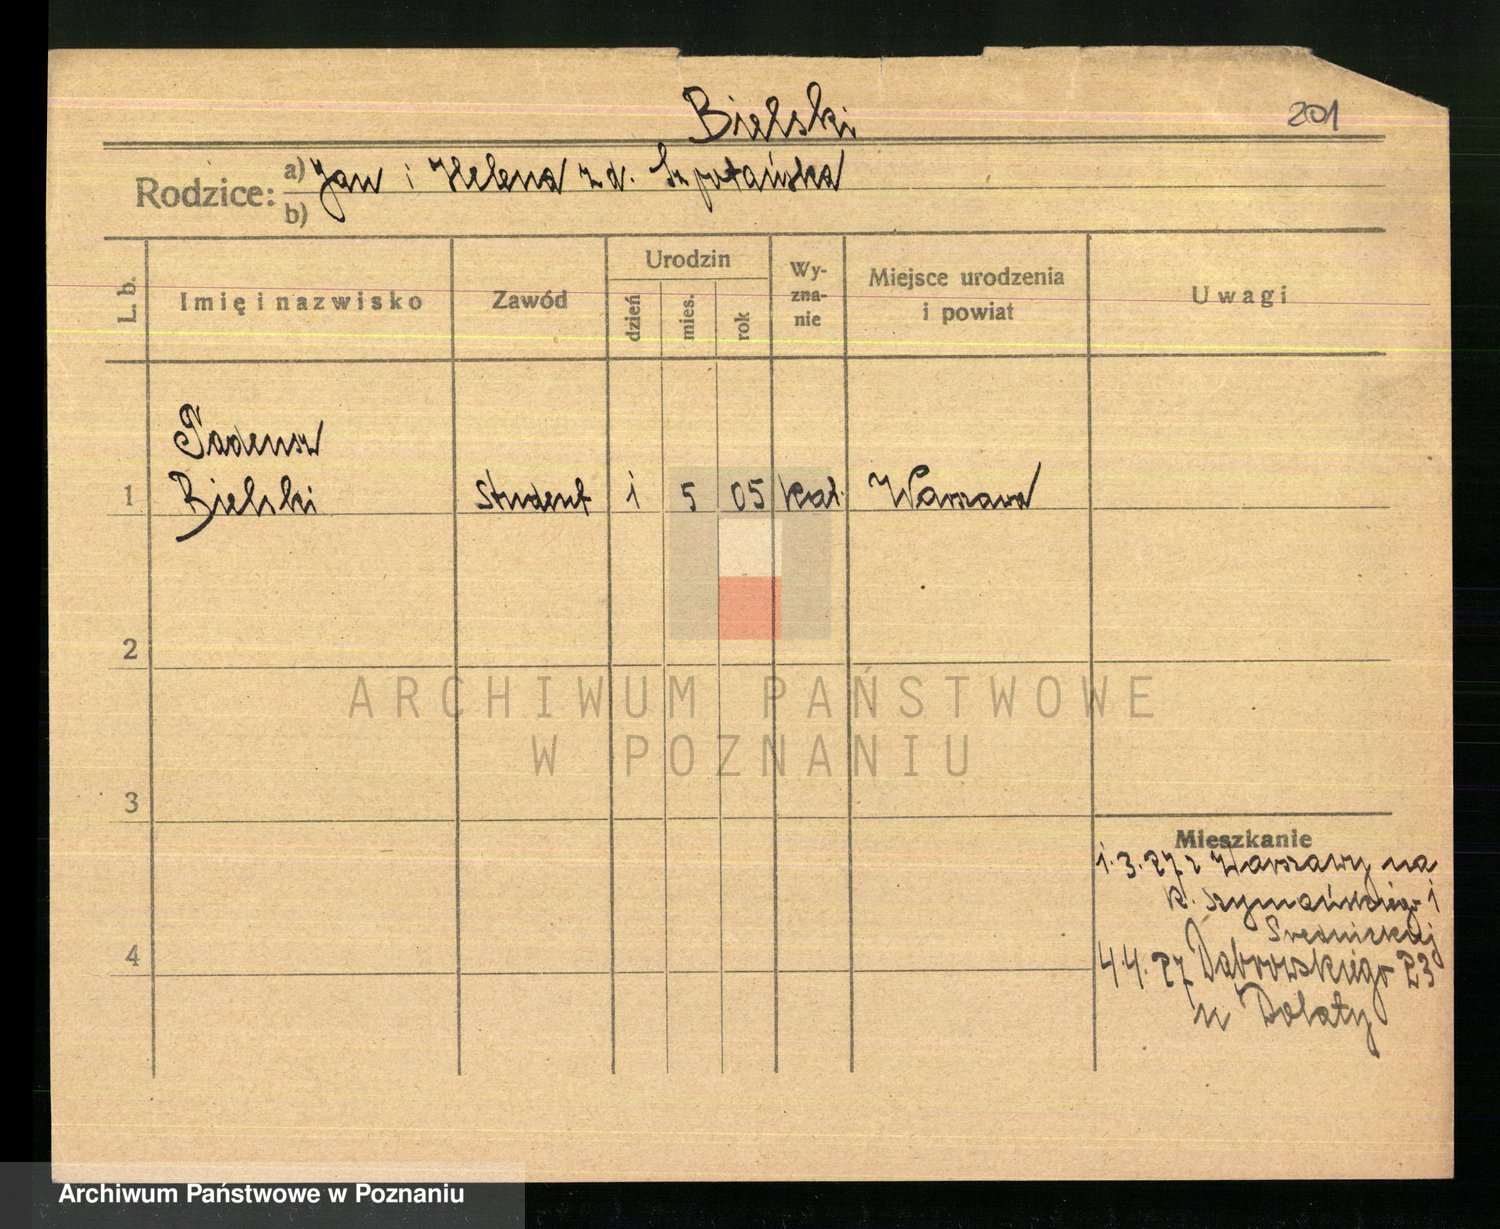 Bielski
201
Rodzice: a) Jan i Helena z d. Szpotańska
b)
L. b.
Imię i nazwisko
Zawód
Urodzin
dzień
mies.
rok
Wy-
zna-
nie
Miejsce urodzenia
i powiat
Uwagi
Tadeusz
1 Bielski student 1 5 05 kat. Warszawa
2
ARCHIWUM PAŃSTWOWE
W POZNANIU
3
Mieszkanie
1.3.27 z Warszawy na
k. Szymańskiego 1
Średnickiej
4
4.4.27 Dąbrowskiego 23
u Dolaty
Archiwum Państwowe w Poznaniu